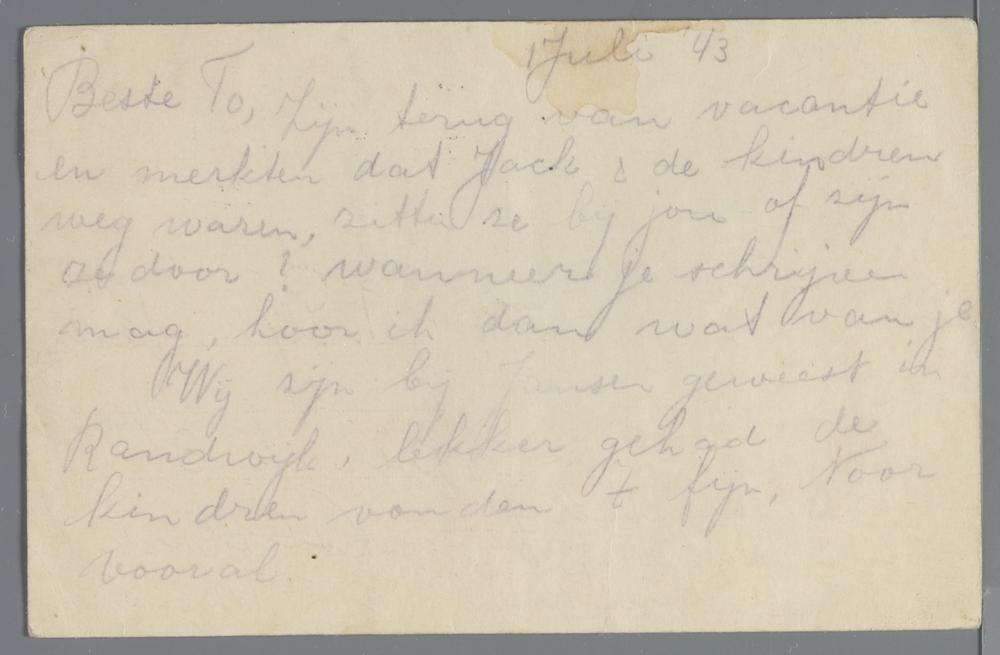 1 Juli '43
Beste To, Zijn terug van vacantie
en merkten dat Jack & de kindren
weg waren, zitten ze bij jou of zijn
ze door? wanneer je schrijven
mag, hoor ik dan wat van je
Wij zijn bij Jansen geweest in
Randwijk, lekker gehad de
kindren vonden 't fijn, Noor
vooral.